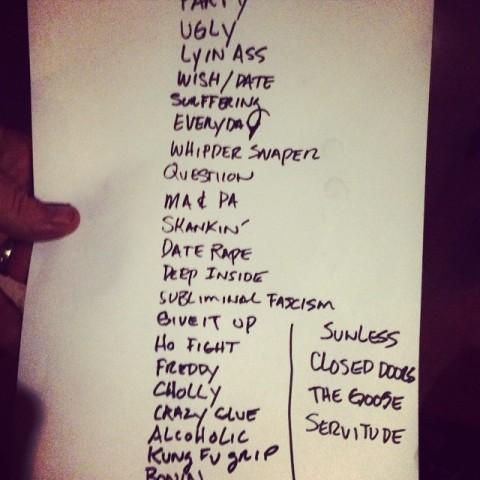 PARTY
UGLY
LYIN ASS
WISH/DATE
SURFFERING
EVERYDAY
WHIPPER SNAPER
QUESTION
MA & PA
SKANKIN'
DATE RAPE
DEEP INSIDE
SUBLIMINAL FASCISM
GIVE IT UP
HO FIGHT
FREDDY
CHOLLY
CRAZY GLUE
ALCOHOLIC
KUNG FU GRIP
BONIN
SUNLESS
CLOSED DOORS
THE GOOSE
SERVITUDE